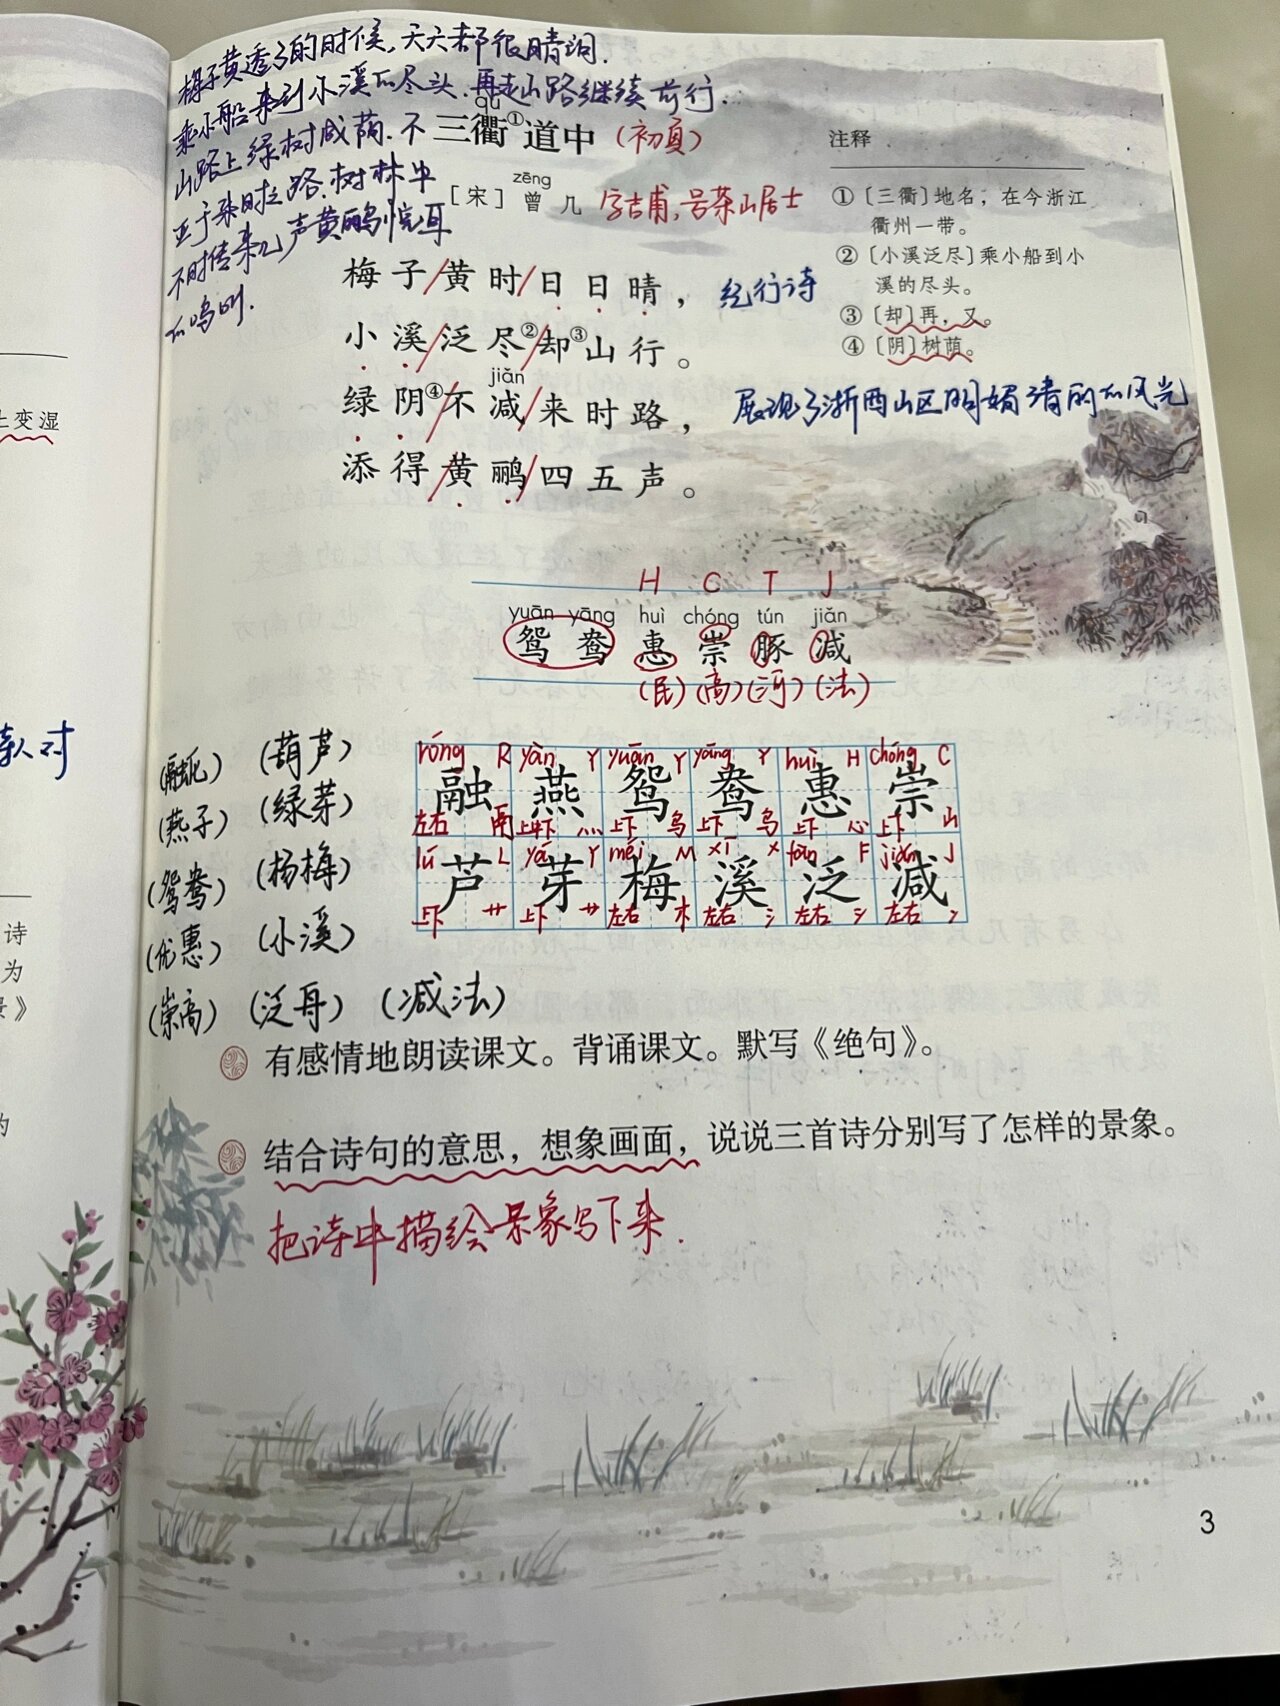 梅子黄透了的时候，天天都很晴朗.
乘小船来到小溪的尽头.再走山路继续前行.
山路上绿树成荫.不
亚于来时之路.树林中
不时传来几声黄鹂悦耳
的鸣叫.
qú
三衢①道中（初夏）
zēng
［宋］曾几 字吉甫,号茶山居士
梅子/黄时/日日晴，纪行诗
小溪/泛尽②/却③山行。
jiǎn
绿阴④/不减/来时路，
展现了浙西山区明媚清的的风光
添得/黄鹂/四五声。
注释
①〔三衢〕地名，在今浙江
衢州一带。
②〔小溪泛尽〕乘小船到小
溪的尽头。
③〔却〕再，又。
④〔阴〕树荫。
上变湿
诗
为
》
H C T J
yuān yāng huì chóng tún jiǎn
鸳鸯惠崇豚减
(民)(高)(河)(法)
róng R yàn Y yuān Y yāng Y huì H chóng C
融燕鸳鸯惠崇
左右 鬲 上中下 灬 上下 鸟 上下 鸟 上下 心 上下 山
lú L yá Y méi M xī X fàn F jiǎn J
芦芽梅溪泛减
上下 艹 上下 艹 左右 木 左右 氵 左右 氵 左右 冫
(融化) (葫芦)
(燕子) (绿芽)
(鸳鸯) (杨梅)
(优惠) (小溪)
(崇高) (泛舟) (减法)
有感情地朗读课文。背诵课文。默写《绝句》。
结合诗句的意思，想象画面，说说三首诗分别写了怎样的景象。
把诗中描绘景象写下来.
3